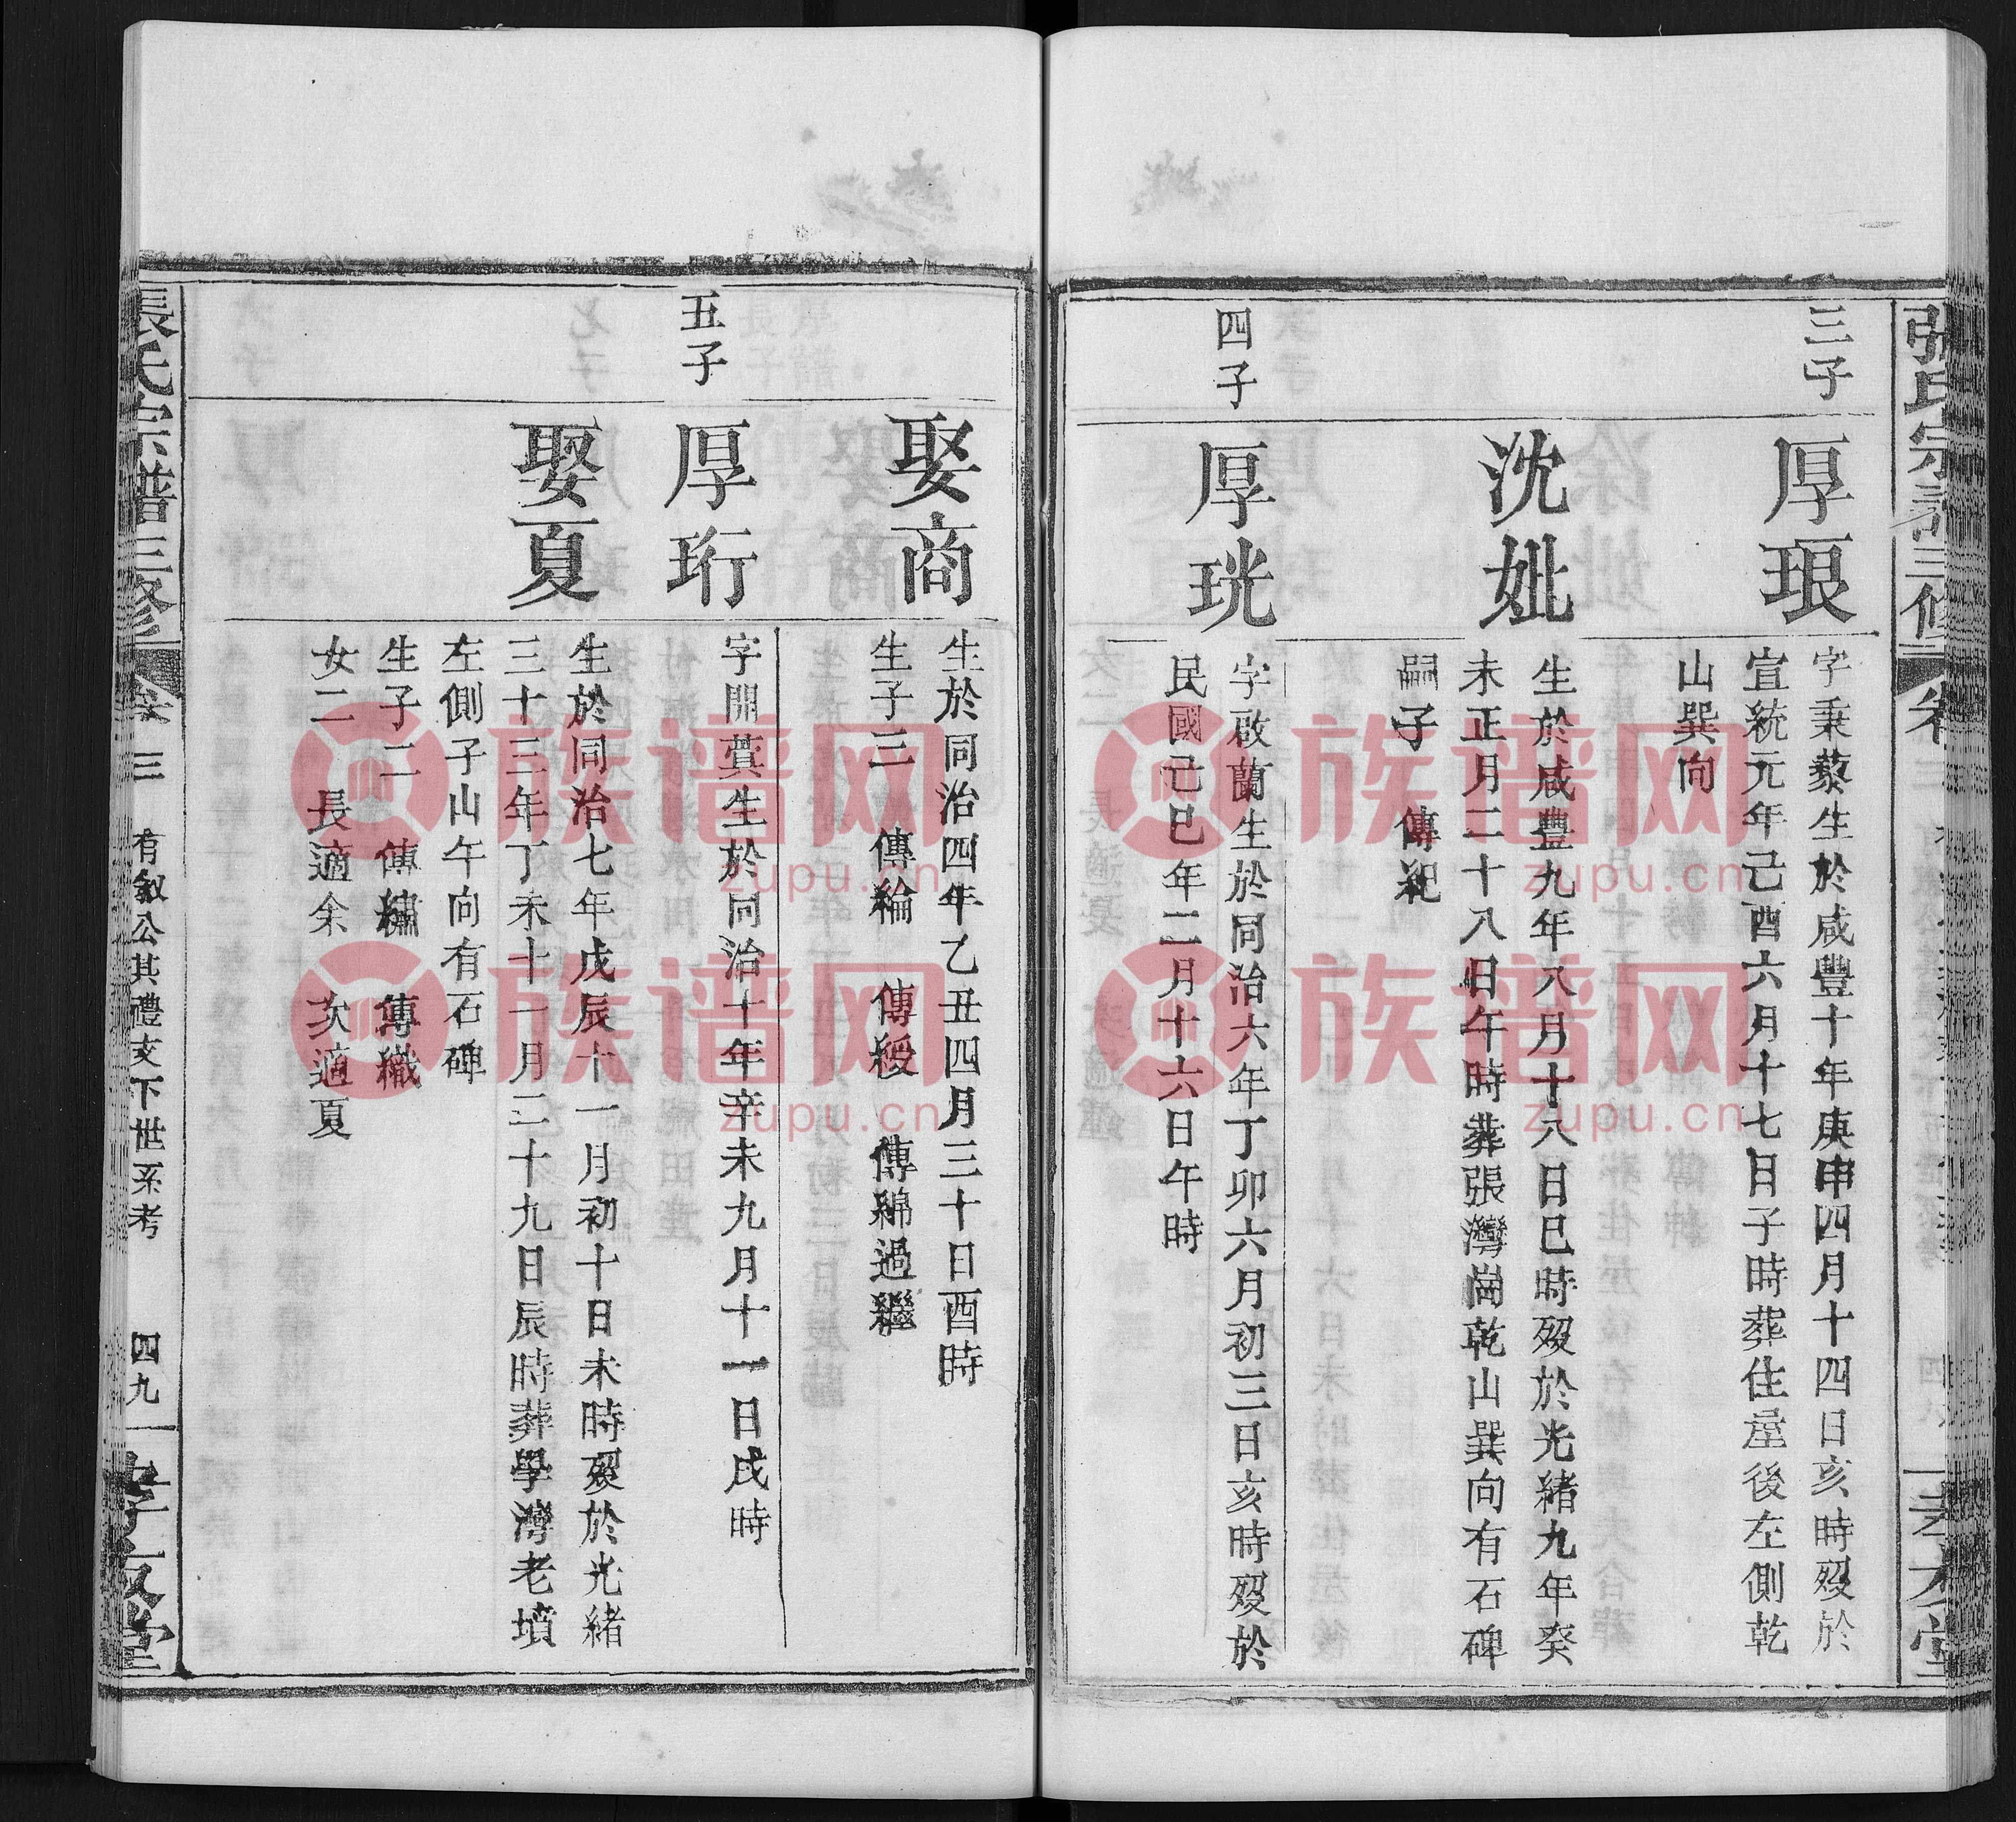 三子
厚琅
字秉藜生於咸豐十年庚申四月十四日亥時歿於
宣統元年己酉六月十七日子時葬住屋後左側乾
山巽向
沈妣
生於咸豐九年八月十八日巳時歿於光緒九年癸
未正月二十八日午時葬張灣崗乾山巽向有石碑
嗣子 傳紀
四子
厚珖
字啟蘭生於同治六年丁卯六月初三日亥時歿於
民國己巳年二月十六日午時
娶商
生於同治四年乙丑四月三十日酉時
生子三 傳綸 傳綬 傳綿過繼
五子
厚珩
字開蓂生於同治十年辛未九月十一日戌時
娶夏
生於同治七年戊辰十一月初十日未時歿於光緒
三十三年丁未十一月二十九日辰時葬學灣老墳
左側子山午向有石碑
生子二 傳繡 傳織
女二 長適余 次適夏
張氏宗譜三修
卷三 有敘公其禮支下世系考 四九
孝友堂
族谱网
zupu.cn
族谱网
zupu.cn
族谱网
zupu.cn
族谱网
zupu.cn